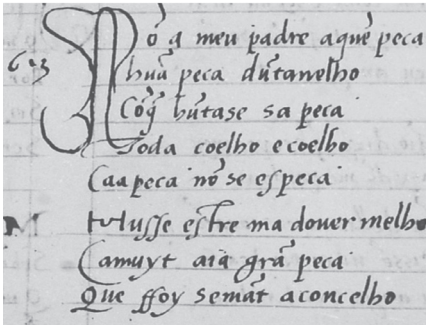 Nõ a meu padre a quẽ peca
63 hũu peca dũtanelho
Cõq̃ hũtase sa peca
Toda coelho e coelho
Caa peca nõ se especa
M husse estre ma dovermelho
Camuyt aiã grã peca
Que ffoy semãt aconcelho